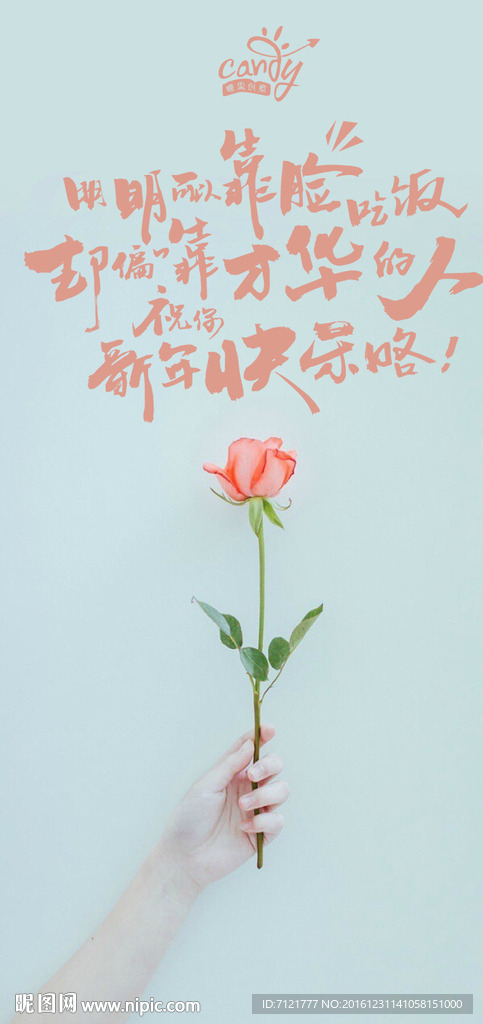 candy
明明可以靠脸吃饭
却偏〃靠才华的人
祝你
新年快呆咯！
昵图网 www.nipic.com
ID:7121777 NO:20161231141058151000